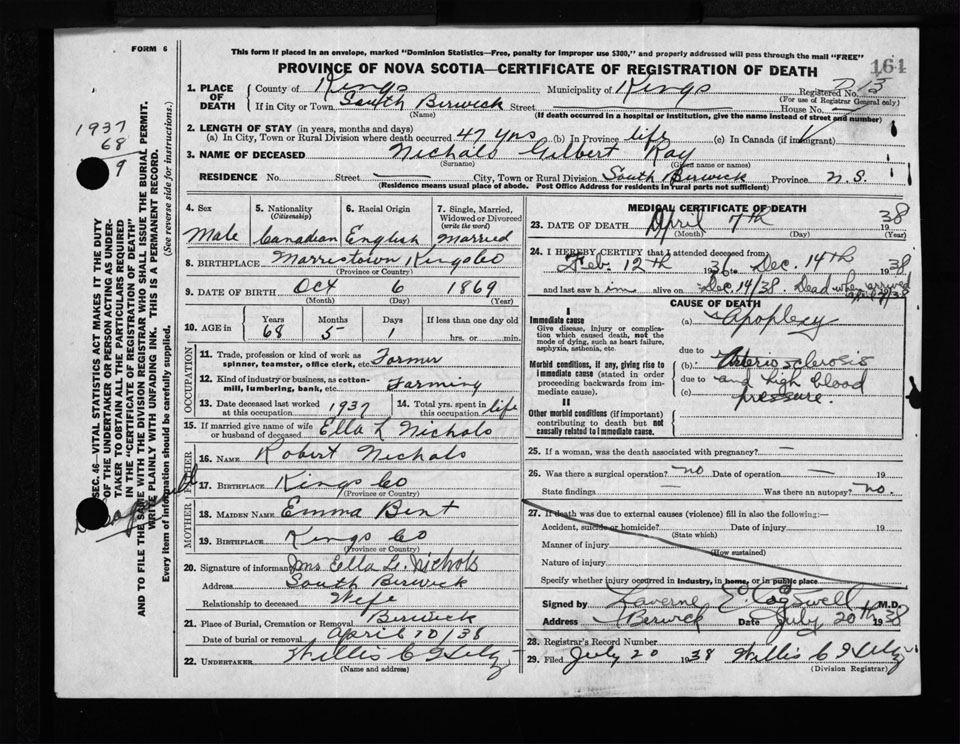 FORM 6
This form if placed in an envelope, marked "Dominion Statistics—Free, penalty for improper use $300," and properly addressed will pass through the mail "FREE"
PROVINCE OF NOVA SCOTIA—CERTIFICATE OF REGISTRATION OF DEATH
164
1937
68
9
SEC. 46—VITAL STATISTICS ACT MAKES IT THE DUTY
OF THE UNDERTAKER OR PERSON ACTING AS UNDER-
TAKER TO OBTAIN ALL THE PARTICULARS REQUIRED
IN THE "CERTIFICATE OF REGISTRATION OF DEATH"
AND TO FILE THE SAME WITH THE DIVISION REGISTRAR WHO SHALL ISSUE THE BURIAL PERMIT.
WRITE PLAINLY WITH UNFADING INK. THIS IS A PERMANENT RECORD.
Every item of information should be carefully supplied. (See reverse side for instructions.)
1. PLACE OF DEATH County of Kings Municipality of Kings Registered No. 15
(For use of Registrar General only)
If in City or Town South Berwick Street House No.
(Name) (If death occurred in a hospital or institution, give the name instead of street and number)
2. LENGTH OF STAY (in years, months and days)
(a) In City, Town or Rural Division where death occurred 47 yrs (b) In Province life (c) In Canada (if immigrant)
3. NAME OF DECEASED Nichols Gilbert Ray
(Surname) (Given name or names)
RESIDENCE No. Street City, Town or Rural Division South Berwick Province N.S.
(Residence means usual place of abode. Post Office Address for residents in rural parts not sufficient)
4. Sex Male
5. Nationality (Citizenship) Canadian
6. Racial Origin English
7. Single, Married, Widowed or Divorced (write the word) Married
8. BIRTHPLACE Morristown Kings Co
(Province or Country)
9. DATE OF BIRTH Oct 6 1869
(Month) (Day) (Year)
10. AGE in Years Months Days If less than one day old
68 5 1 hrs. or min.
OCCUPATION
11. Trade, profession or kind of work as spinner, teamster, office clerk, etc. Farmer
12. Kind of industry or business, as cotton-mill, lumbering, bank, etc. Farming
13. Date deceased last worked at this occupation 1937
14. Total yrs. spent in this occupation life
15. If married give name of wife or husband of deceased Ella L Nichols
FATHER
16. NAME Robert Nichols
17. BIRTHPLACE Kings Co
(Province or Country)
MOTHER
18. MAIDEN NAME Emma Bent
19. BIRTHPLACE Kings Co
(Province or Country)
20. Signature of informant Mrs Ella L. Nichols
Address South Berwick
Relationship to deceased Wife
21. Place of Burial, Cremation or Removal Berwick
Date of burial or removal April 10/38
22. UNDERTAKER Willis C
(Name and address)
MEDICAL CERTIFICATE OF DEATH
23. DATE OF DEATH April 7th 1938
(Month) (Day) (Year)
24. I HEREBY CERTIFY that I attended deceased from
Feb. 12th 1936 to Dec. 14th 1938
and last saw him alive on Dec 14/38. Dead when
CAUSE OF DEATH
I
Immediate cause
Give disease, injury or complication which caused death, not the mode of dying, such as heart failure, asphyxia, asthenia, etc.
(a) Apoplexy
due to
Morbid conditions, if any, giving rise to immediate cause (stated in order proceeding backwards from immediate cause).
(b) Arterio sclerosis
due to and high blood
(c) pressure.
II
Other morbid conditions (if important) contributing to death but not causally related to immediate cause.
25. If a woman, was the death associated with pregnancy? —
26. Was there a surgical operation? no Date of operation — 19
State findings — Was there an autopsy? no.
27. If death was due to external causes (violence) fill in also the following:—
Accident, suicide or homicide? Date of injury 19
(State which)
Manner of injury
(How sustained)
Nature of injury
Specify whether injury occurred in industry, in home, or in public place
Signed by Laverne E. Cogswell M.D.
Address Berwick Date July 20th 1938
28. Registrar's Record Number
29. Filed July 20 1938 Willis C
(Division Registrar)